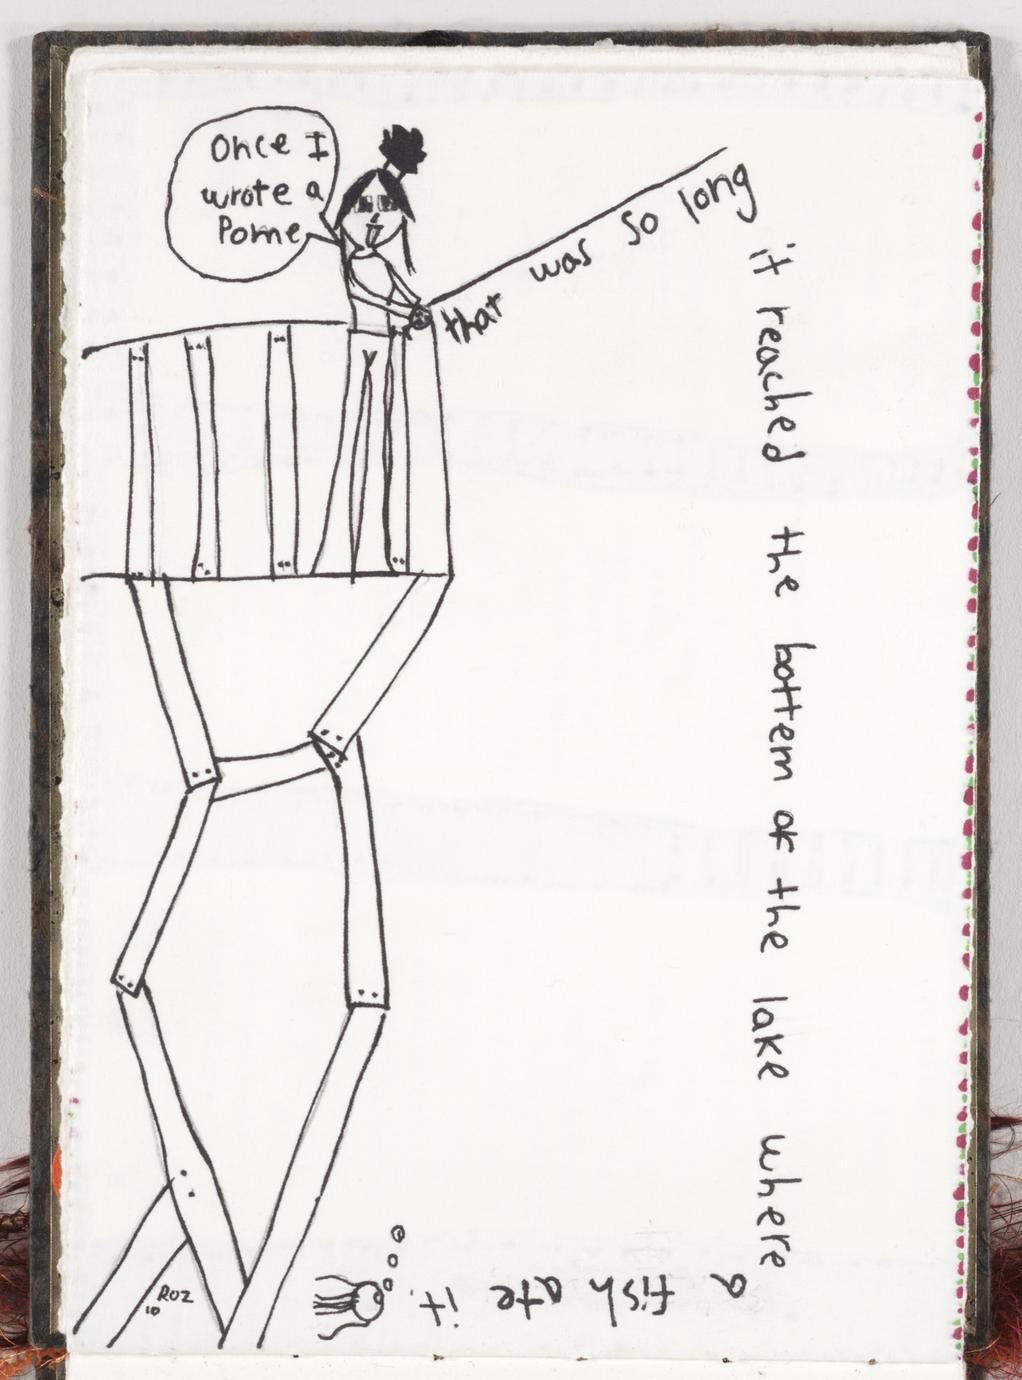 Once I
wrote a
Pome
that was so long
it reached the bottem of the lake where
a fish ate it.
ROZ
10